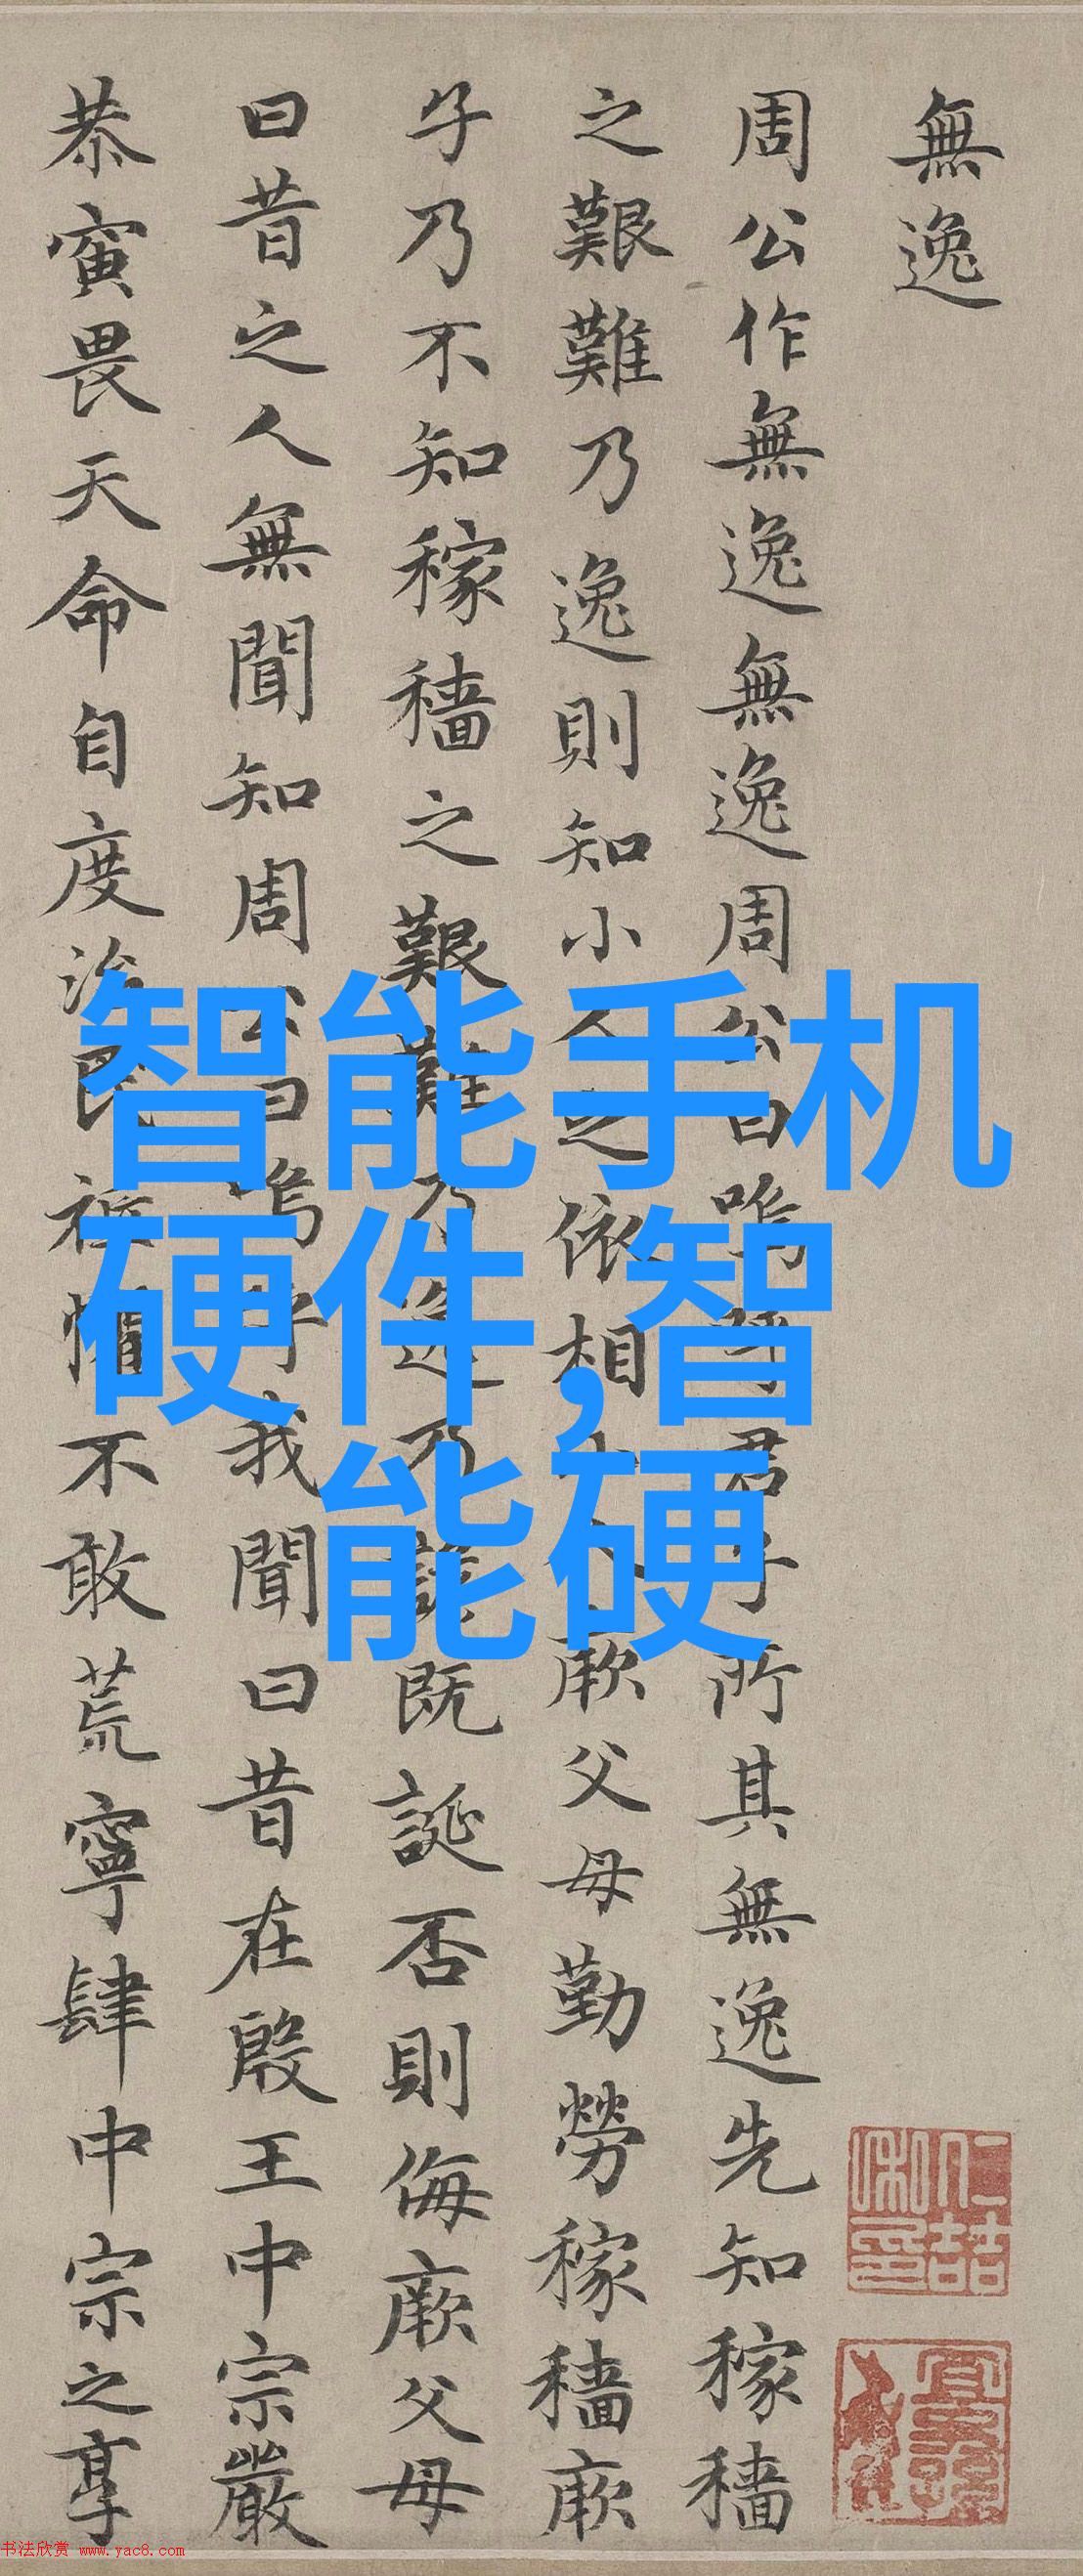 無逸
周公作無逸無逸周公曰嗚呼君子所其無逸先知稼穡
之艱難乃逸則知小人之依相小人厥父母勤勞稼穡厥
子乃不知稼穡之艱難乃逸乃諺既誕否則侮厥父母
曰昔之人無聞知周公曰嗚呼我聞曰昔在殷王中宗嚴
恭寅畏天命自度治民祗懼不敢荒寧肆中宗之享
智能手机
硬件,智
能硬
书法欣赏 www.yac8.com